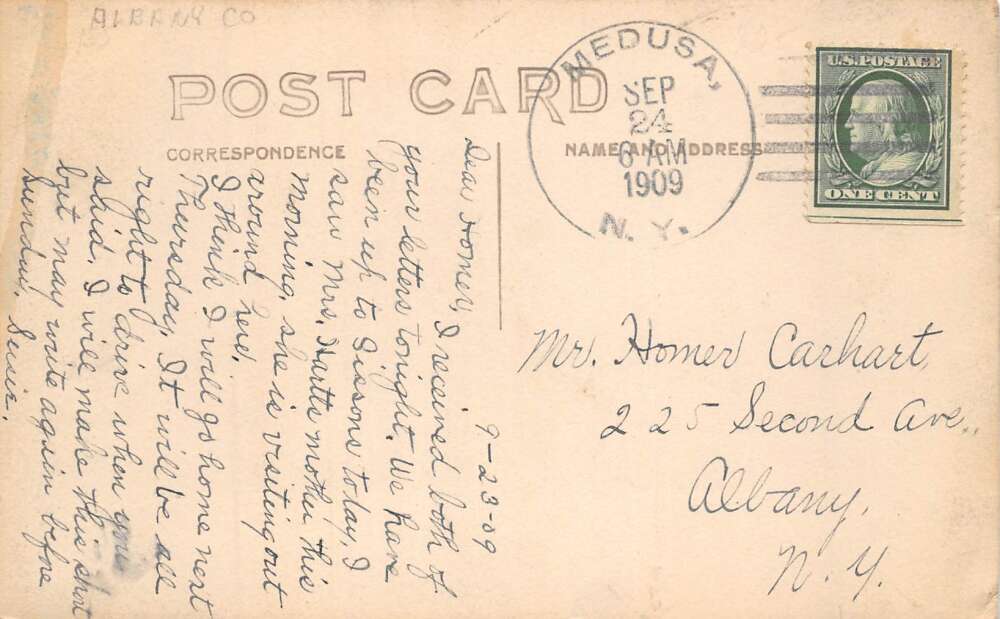 ALBANY CO
POST CARD
CORRESPONDENCE
NAME AND ADDRESS
MEDUSA,
SEP
24
6 AM
1909
N.Y.
U.S. POSTAGE
ONE CENT
9-23-09
Dear Homer, I received both of
your letters tonight. We have
been up to Sissons to day, I
saw Mrs. Hartts mother this
morning, she is visiting out
around here.
I think I will go home next
Thursday, It will be all
right to drive when you
said, I will make this short
but may write again before
Sunday.
Mr. Homer Carhart,
225 Second Ave.,
Albany,
N.Y.